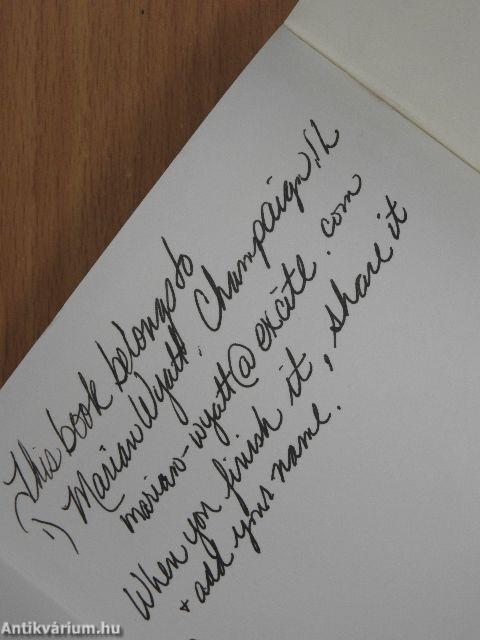 This book belongs to
1) Marian Wyatt, Champaign, IL
marian-wyatt@excite.com
When you finish it, share it
+ add your name.
Antikvárium.hu